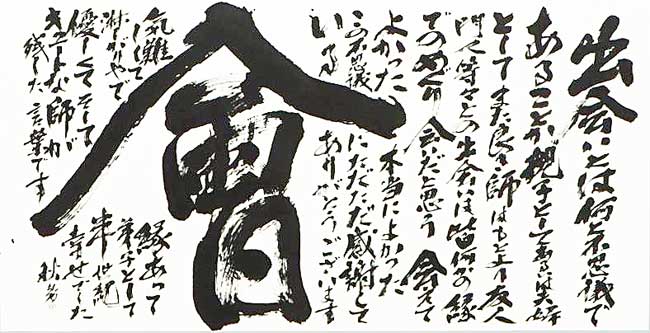 出会いとは何と不思議で
あることか親子としてあるいは夫婦
としてまた良き師はもとより友人
門下等々との出会いは皆何かの縁
でのめぐり会いだと思う 会えて
よかった 本当によかった
この不思議にただただ感謝して
いる ありがとうございます
會
気難しくて
淋しがりやで
優しくてそして
キュートな師が
残した言葉です
縁あって
弟子として
半世紀
幸せでした